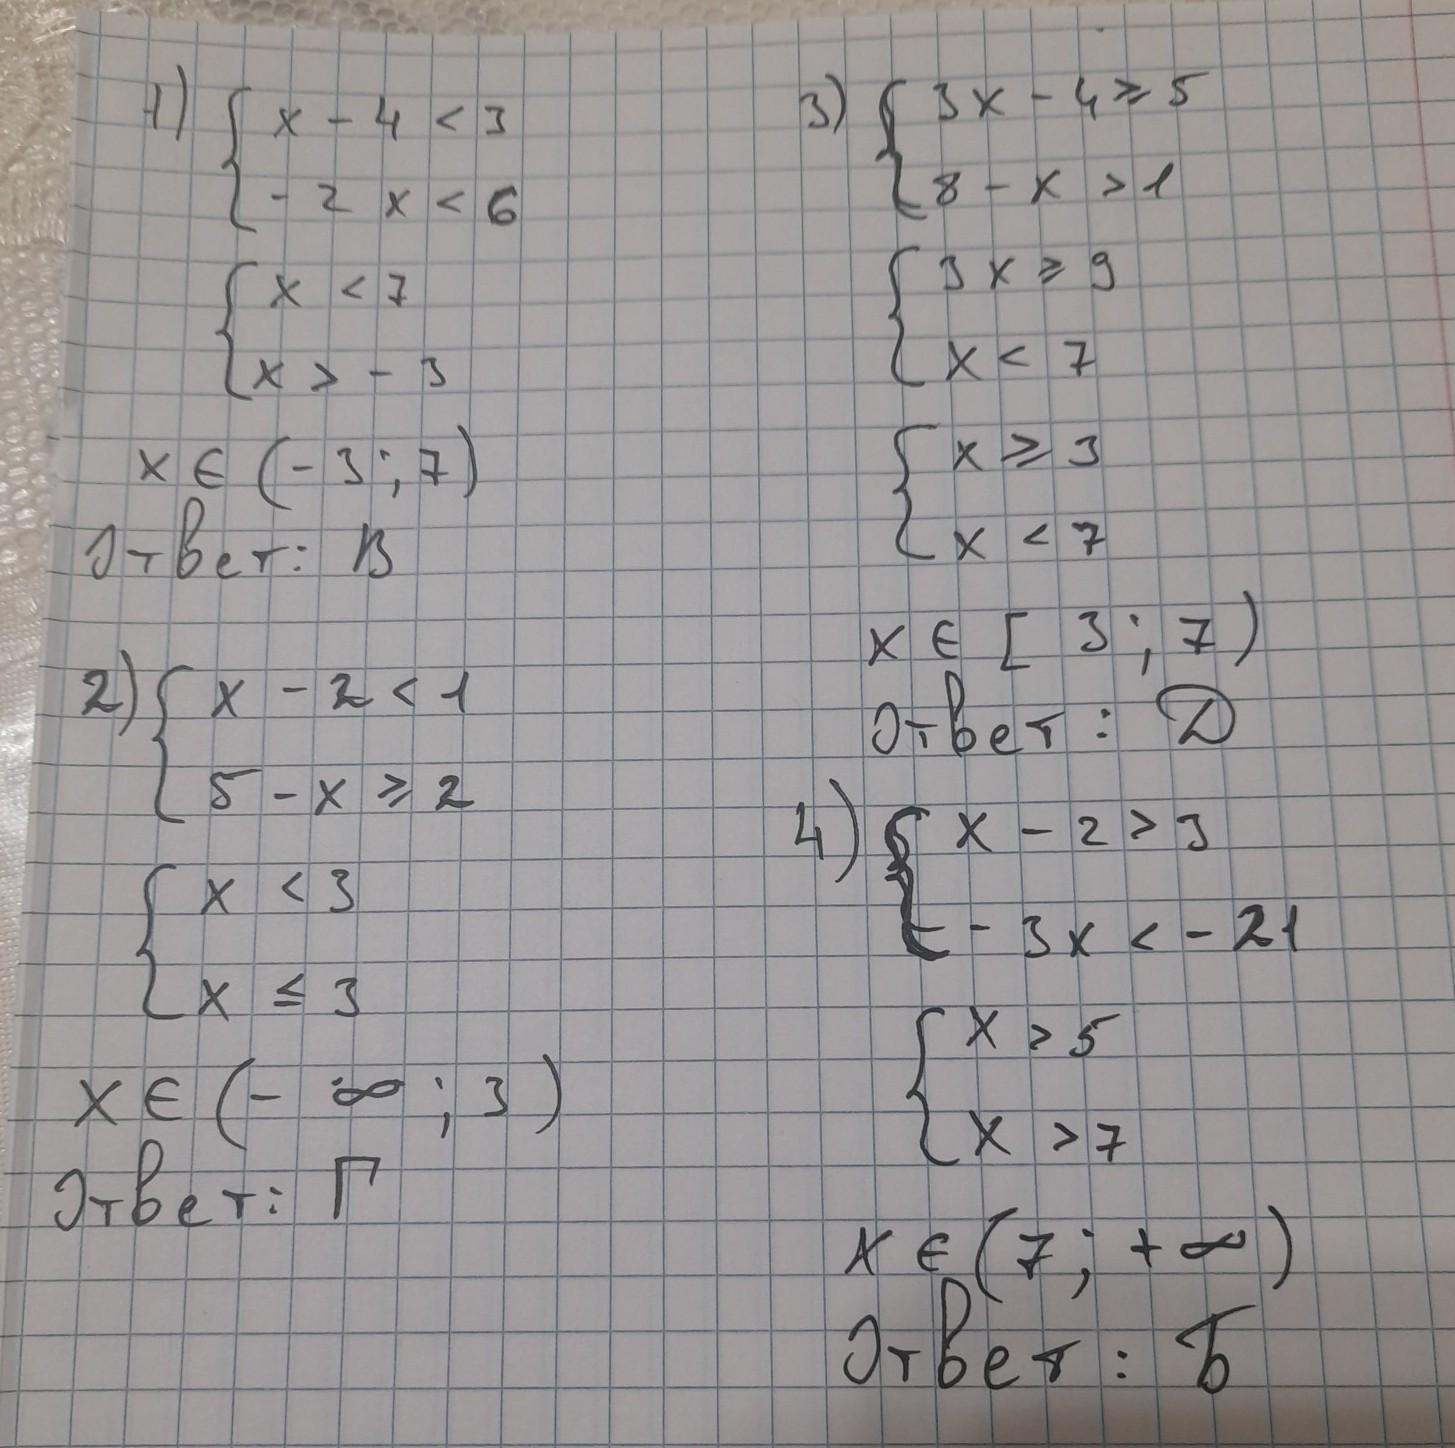 1) { x - 4 < 3
- 2 x < 6
{ x < 7
x > - 3
x ∈ (- 3 ; 7)
Ответ: В
2) { x - 2 < 1
5 - x ⩾ 2
{ x < 3
x ≤ 3
x ∈ (- ∞ ; 3)
Ответ: Г
3) { 3x - 4 ⩾ 5
8 - x > 1
{ 3x ⩾ 9
x < 7
{ x ⩾ 3
x < 7
x ∈ [ 3 ; 7)
Ответ: Д
4) { x - 2 > 3
- 3x < - 21
{ x > 5
x > 7
x ∈ (7 ; + ∞)
Ответ: Б